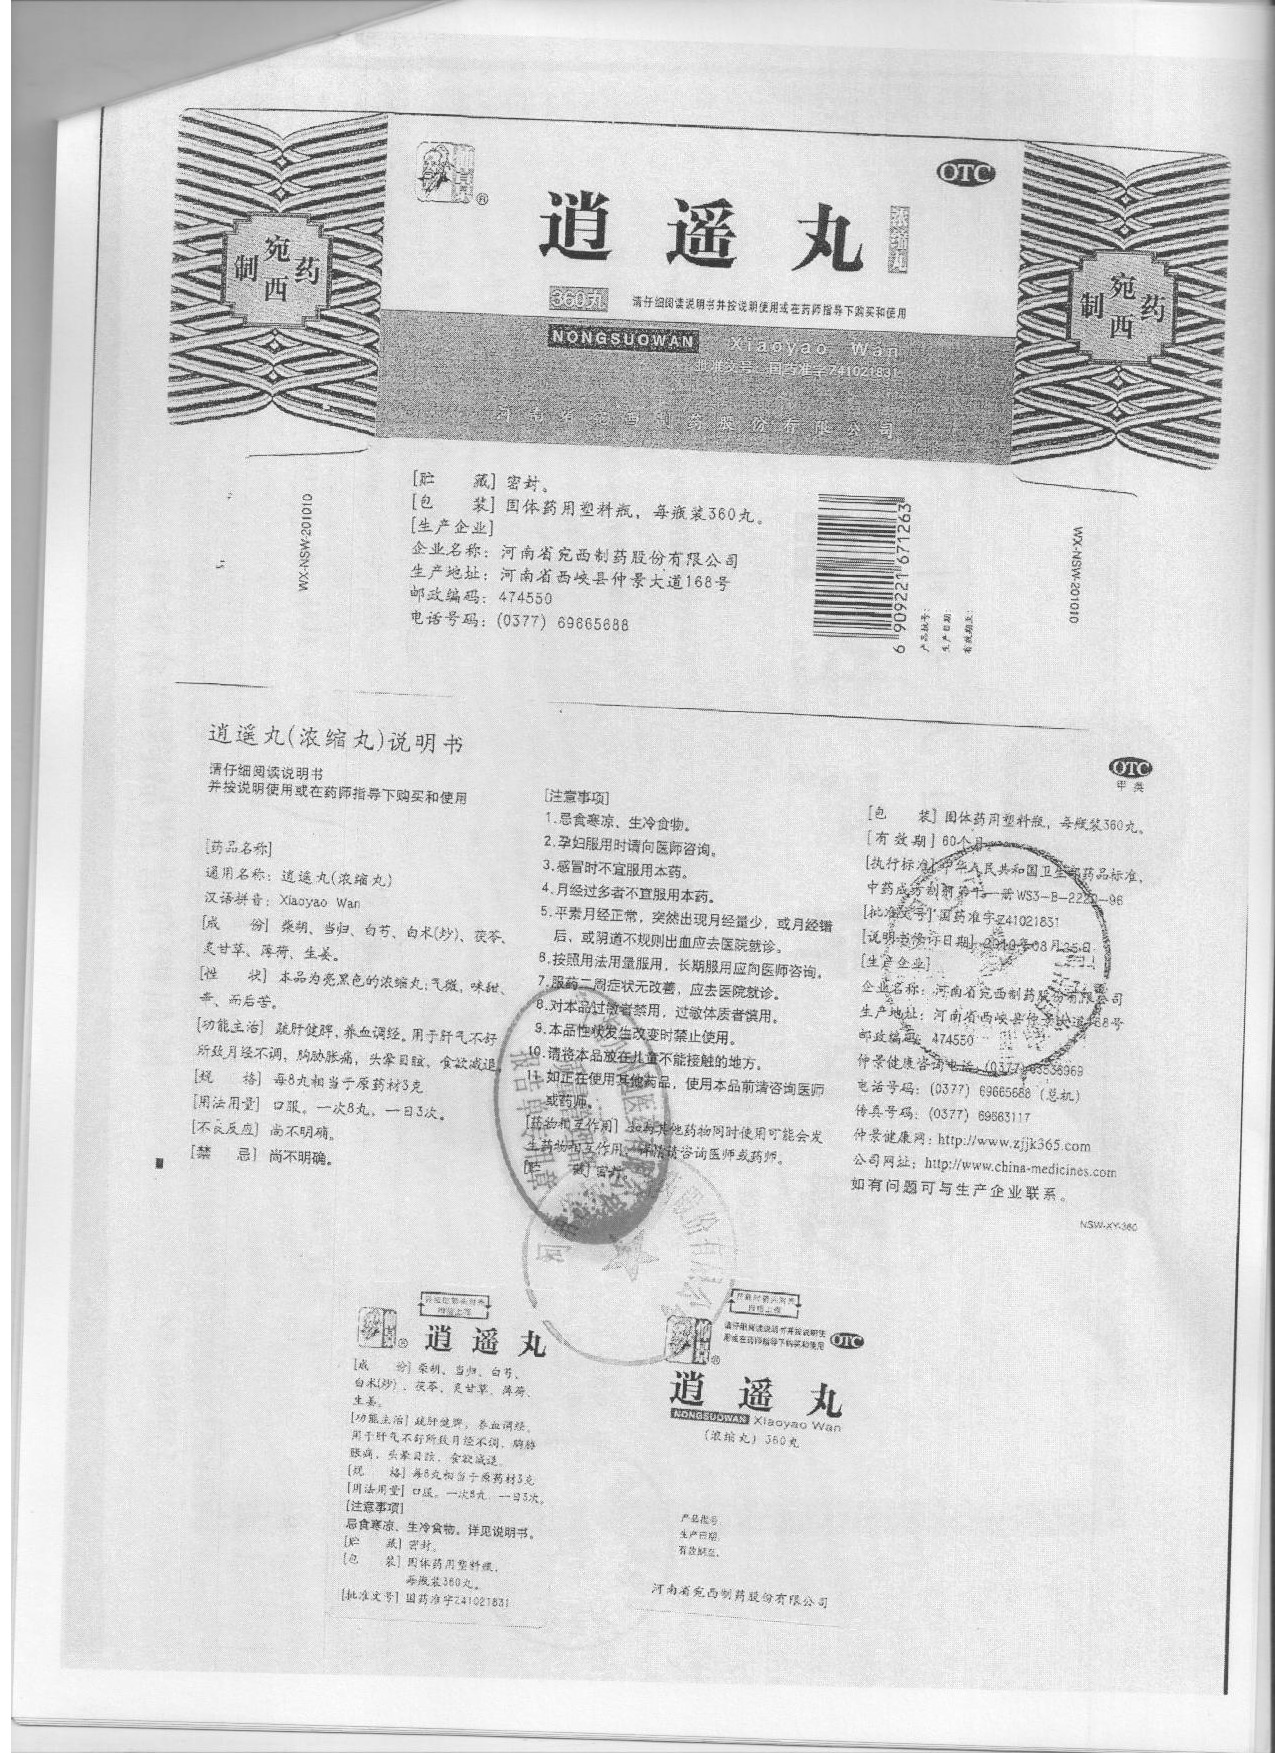 宛西制药
仲景
®
OTC
逍遥丸
浓缩丸
360丸
请仔细阅读说明书并按说明使用或在药师指导下购买和使用
NONGSUOWAN Xiaoyao Wan
批准文号 国药准字Z41021831
河南省宛西制药股份有限公司
宛西制药
WX-NSW-201010
[贮 藏] 密封。
[包 装] 固体药用塑料瓶，每瓶装360丸。
[生产企业]
企业名称：河南省宛西制药股份有限公司
生产地址：河南省西峡县仲景大道168号
邮政编码：474550
电话号码：(0377) 69665688
6 909221 671263
产品批号：
生产日期：
有效期至：
WX-NSW-201010
逍遥丸(浓缩丸)说明书
请仔细阅读说明书
并按说明使用或在药师指导下购买和使用
[药品名称]
通用名称：逍遥丸(浓缩丸)
汉语拼音：Xiaoyao Wan
[成 份] 柴胡、当归、白芍、白术(炒)、茯苓、
炙甘草、薄荷、生姜。
[性 状] 本品为亮黑色的浓缩丸;气微，味甜、
辛、而后苦。
[功能主治] 疏肝健脾，养血调经。用于肝气不舒
所致月经不调，胸胁胀痛，头晕目眩，食欲减退。
[规 格] 每8丸相当于原药材3克
[用法用量] 口服。一次8丸，一日3次。
[不良反应] 尚不明确。
[禁 忌] 尚不明确。
[注意事项]
1.忌食寒凉、生冷食物。
2.孕妇服用时请向医师咨询。
3.感冒时不宜服用本药。
4.月经过多者不宜服用本药。
5.平素月经正常，突然出现月经量少，或月经错
后，或阴道不规则出血应去医院就诊。
6.按照用法用量服用，长期服用应向医师咨询。
7.服药二周症状无改善，应去医院就诊。
8.对本品过敏者禁用，过敏体质者慎用。
9.本品性状发生改变时禁止使用。
10.请将本品放在儿童不能接触的地方。
11.如正在使用其他药品，使用本品前请咨询医师
或药师。
[药物相互作用] 如与其他药物同时使用可能会发
生药物相互作用，详情请咨询医师或药师。
[贮 藏] 密封。
OTC
甲类
[包 装] 固体药用塑料瓶，每瓶装360丸。
[有效期] 60个月。
[执行标准] 中华人民共和国卫生部药品标准，
中药成方制剂第十一册 WS3-B-2222-96
[批准文号] 国药准字Z41021831
[说明书修订日期] 2010年08月25日
[生产企业]
企业名称：河南省宛西制药股份有限公司
生产地址：河南省西峡县仲景大道168号
邮政编码：474550
仲景健康咨询电话：(0377) 63536969
电话号码：(0377) 69665688 (总机)
传真号码：(0377) 69663117
仲景健康网：http://www.zjjk365.com
公司网址：http://www.china-medicines.com
如有问题可与生产企业联系。
NSW-XY-360
仲景
®
逍遥丸
[成 份] 柴胡、当归、白芍、
白术(炒)、茯苓、炙甘草、薄荷、
生姜。
[功能主治] 疏肝健脾，养血调经。
用于肝气不舒所致月经不调，胸胁
胀痛，头晕目眩，食欲减退。
[规 格] 每8丸相当于原药材3克
[用法用量] 口服。一次8丸，一日3次。
[注意事项]
忌食寒凉、生冷食物。详见说明书。
[贮 藏] 密封。
[包 装] 固体药用塑料瓶，
每瓶装360丸。
[批准文号] 国药准字Z41021831
请仔细阅读说明书并按说明使
用或在药师指导下购买和使用
OTC
®
逍遥丸
NONGSUOWAN Xiaoyao Wan
(浓缩丸) 360丸
产品批号：
生产日期：
有效期至：
河南省宛西制药股份有限公司